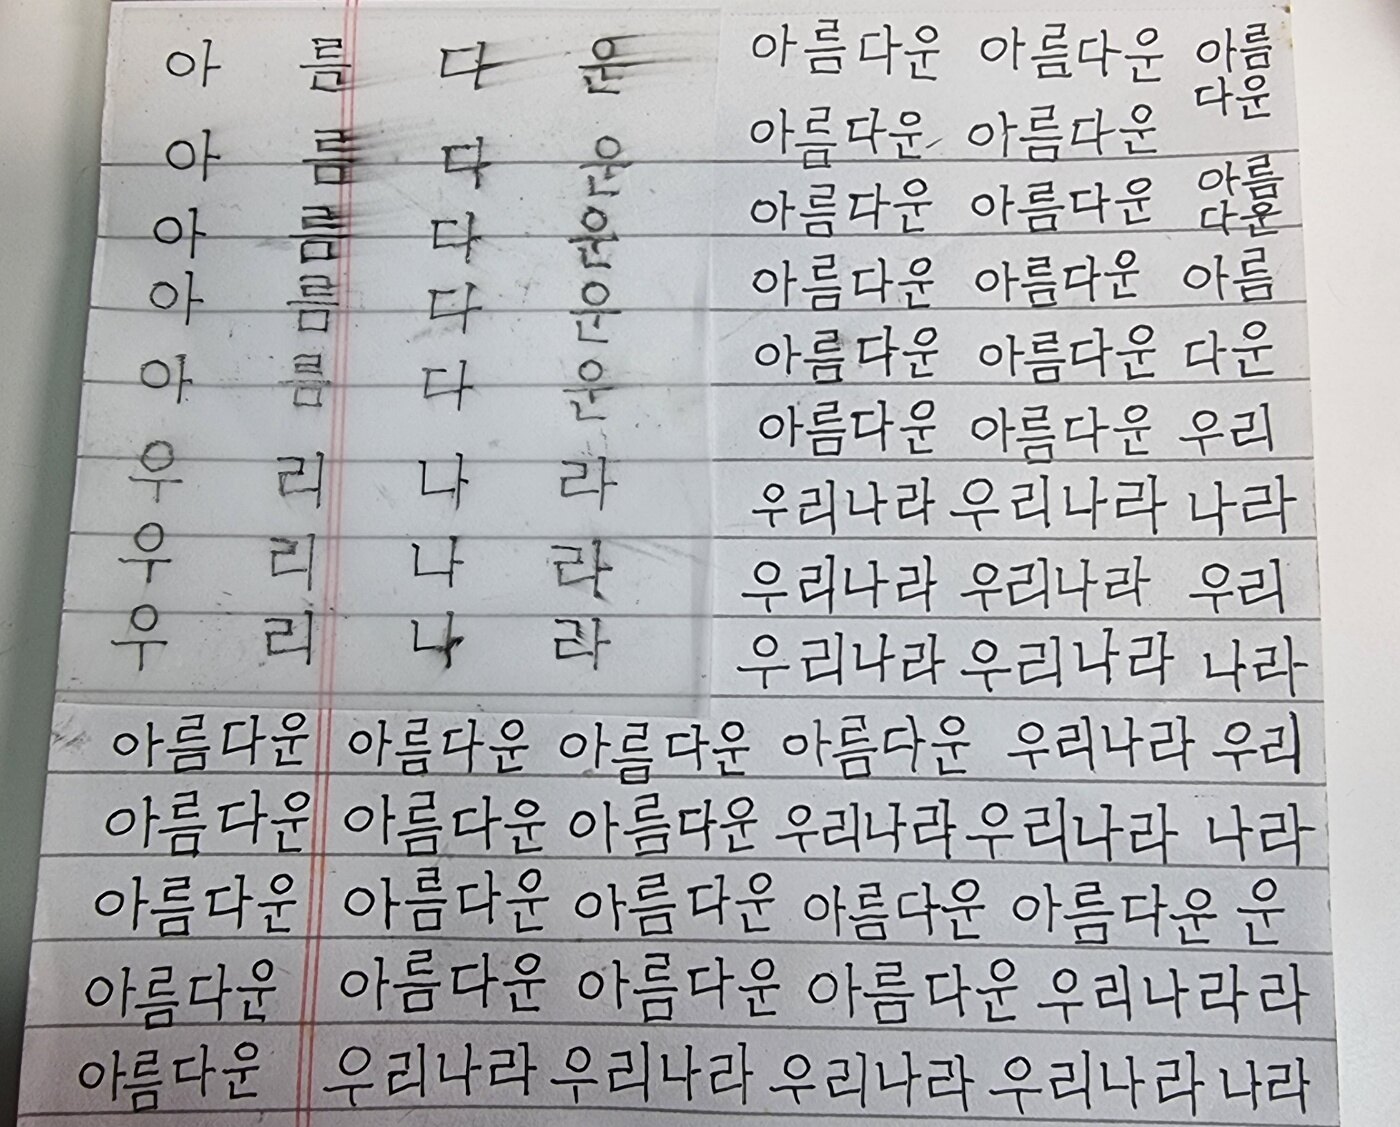 아 름 다 운 아름다운 아름다운 아름
다운
아 름 다 운 아름다운 아름다운
아 름 다 운 아름다운 아름다운 아름
다운
아 름 다 운 아름다운 아름다운 아름
아 름 다 운 아름다운 아름다운 다운
아름다운 아름다운 우리
우 리 나 라 우리나라 우리나라 나라
우 리 나 라 우리나라 우리나라 우리
우 리 나 라 우리나라 우리나라 나라
아름다운 아름다운 아름다운 아름다운 우리나라 우리
아름다운 아름다운 아름다운 우리나라 우리나라 나라
아름다운 아름다운 아름다운 아름다운 아름다운 운
아름다운 아름다운 아름다운 아름다운 우리나라 라
아름다운 우리나라 우리나라 우리나라 우리나라 나라